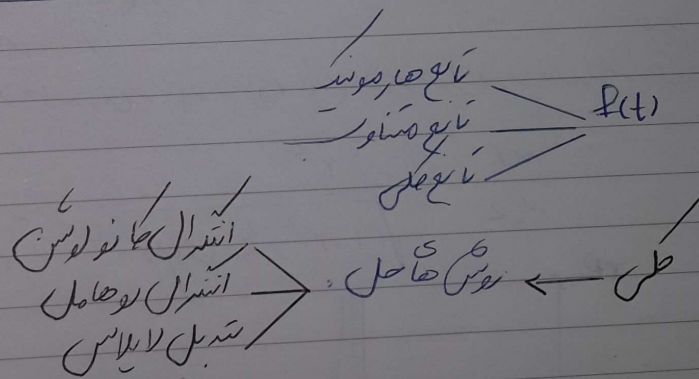 تابع هارمونیک
f(t)
تابع متناوب
تابع کلی
کلی ← روش های حل:
انتگرال کانولوشن
انتگرال دوهامل
تبدیل لاپلاس